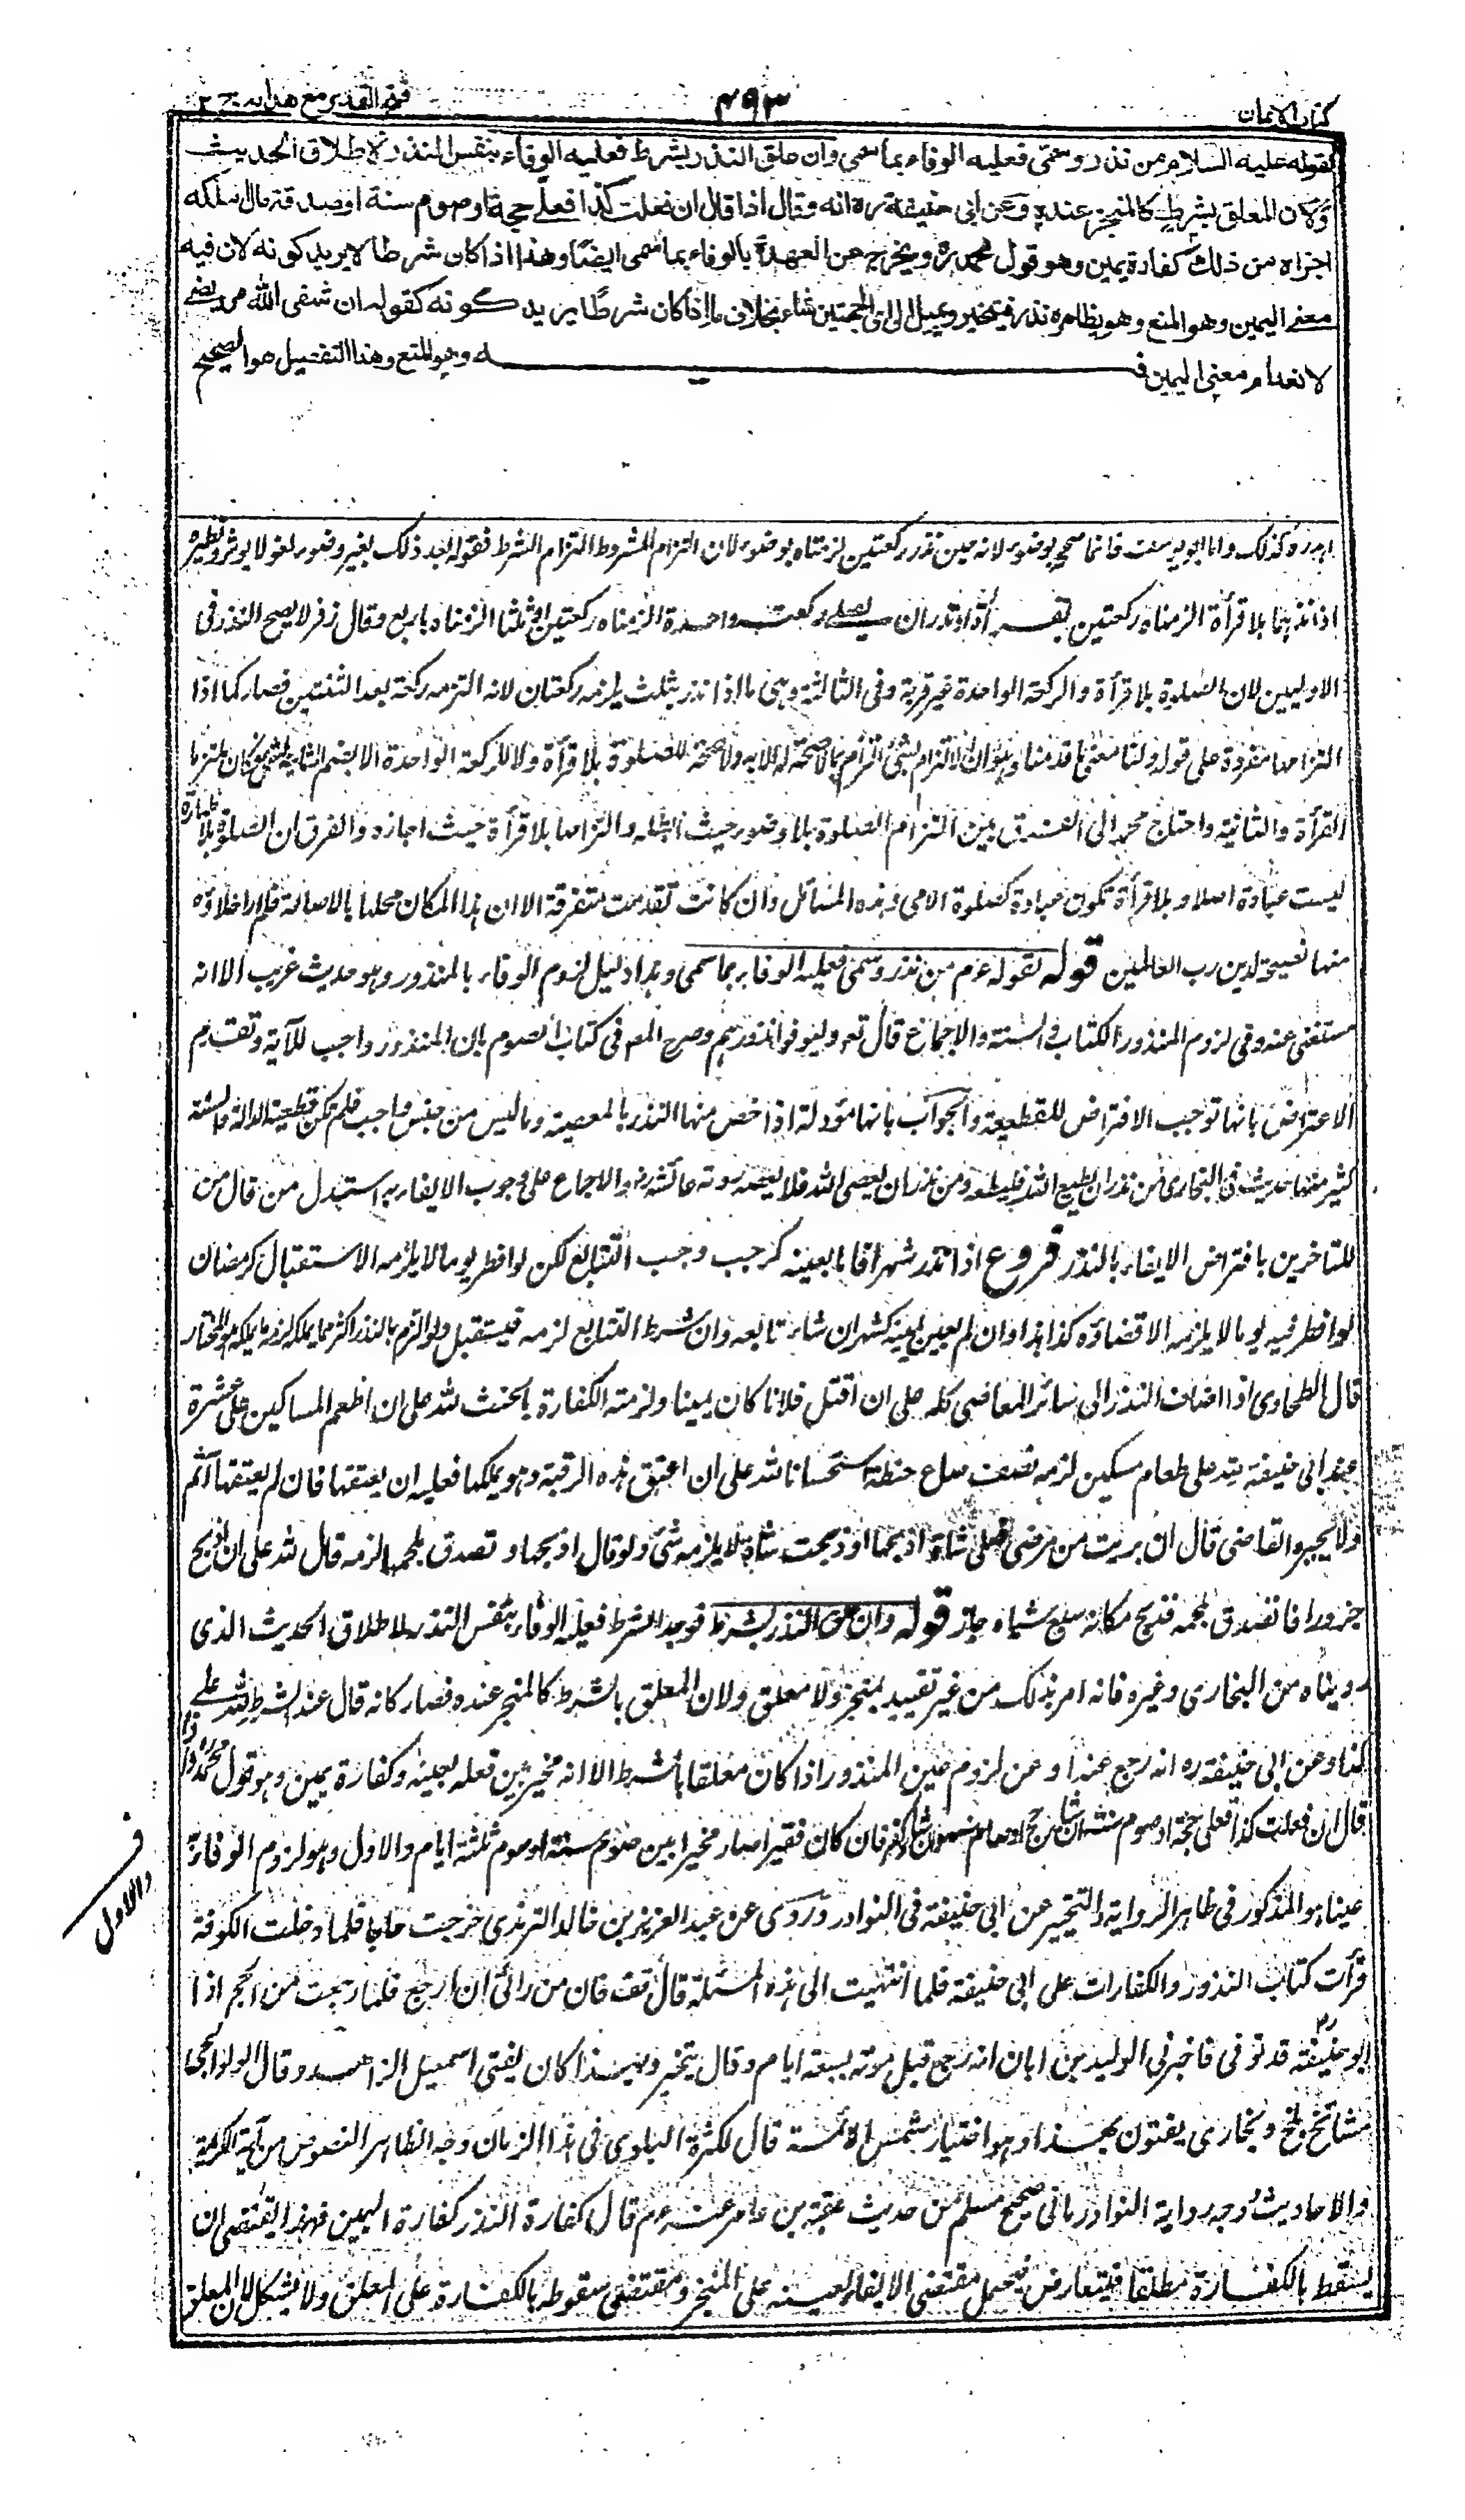 كتاب الايمان
٤٩٣
فتح القدير مع هدايه ج ٢
لقوله عليه السلام من نذر وسمى فعليه الوفاء بما سمى وان علق النذر بشرط فعليه الوفاء بنفس النذر لاطلاق الحديث
ولان المعلق بشرط كالمنجز عنده وعن ابى حنيفة ره انه وقال اذا قال ان فعلت كذا فعلى حجة او صوم سنة او صدقة مال املكه
اجزاه من ذلك كفارة يمين وهو قول محمد ره ويخرج عن العهدة بالوفاء بما سمى ايضا وهذا اذا كان شرطا لا يريد كونه لان فيه
معنى اليمين وهو المنع وهو بظاهره نذر فيتخير ويميل الى اى الجهتين شاء بخلاف ما اذا كان شرطا يريد كونه كقوله ان شفى الله مريضى
لانعدام معنى اليمين فيه وهو المنع وهذا التفصيل هو الصحيح
اهدره كذلك واما ابو يوسف فانما صححه بوضوء لانه حين نذر ركعتين لزمتاه بوضوء لان التزام المشروط التزام الشرط فقوله بعد ذلك بغير وضوء لغو لا يؤثر ونظيره
اذا نذرهما بلا قرأة الزمناه ركعتين بقرأة او نذر ان يصلى ركعت واحدة الزمناه ركعتين او ثلثا الزمناه باربع وقال زفر لا يصح النذر فى
الاوليين لان الصلوة بلا قرأة والركعة الواحدة غير قربة وفى الثالثة وهى ما اذا نذر بثلث يلزمه ركعتان لانه التزم ركعة بعد الثنتين فصار كما اذا
التزامها منفردة على قوله ولنا معنى ما قدمناه وهو ان الالتزام بشئ التزام بما لا صحة له الا به ولا صحة للصلوة بلا قرأة ولا للركعة الواحدة الا بضم الثانية فكان ملتزما
القرأة والثانية واحتاج محمد الى الفرق بين التزام الصلوة بلا وضوء حيث ابطله والتزامها بلا قرأة حيث اجازه والفرق ان الصلوة بلا طهارة
ليست عبادة اصلا وبلا قرأة تكون عبادة كصلوة الامى وهذه المسائل وان كانت تقدمت متفرقة الا ان هذا المكان محلها بالاصالة فلم ار اخلاؤه
منها نصيحة لدين رب العالمين قوله لقوله عم من نذر وسمى فعليه الوفاء بما سمى وهذا دليل لزوم الوفاء بالمنذور وهو حديث غريب الا انه
مستغنى عنه وفى لزوم المنذور الكتاب والسنة والاجماع قال تعـ وليوفوا نذورهم وصرح المصـ فى كتاب الصوم بان المنذور واجب للآية وتقدم
الاعتراض بانها توجب الافتراض للقطعية والجواب بانها مؤولة اذا خص منها النذر بالمعصية وما ليس من جنس واجب فلم تكن قطعية الدلالة والسنة
كثير منها حديث فى البخارى من نذر ان يطيع الله فليطعه ومن نذر ان يعصى الله فلا يعصه روته عائشة رضـ والاجماع على وجوب الايفاء به استدل من قال من
المتاخرين بافتراض الايفاء بالنذر فروع اذا نذر شهرا فاما بعينه كرجب وجب التتابع لكن لو افطر يوما لا يلزمه الاستقبال كرمضان
لو افطر فيه يوما لا يلزمه الا قضاؤه كذا هذا وان لم يعين بعينه كشهر ان شاء تابعه وان شرط التتابع لزمه فيستقبل ولو التزم بالنذر اكثر مما يملك لزمه ما يملكه هو المختار
قال الطحاوى اذا اضاف النذر الى سائر المعاصى كله على ان اقتل فلانا كان يمينا ولزمته الكفارة بالحنث لله على ان اطعم المساكين على عشرة
عند ابى حنيفة لله على طعام مسكين لزمه نصف صاع حنطة استحسانا لله على ان اعتق هذه الرقبة وهو يملكها فعليه ان يعتقها فان لم يعتقها اثم
ولا يجبره القاضى قال ان بريت من مرضى هذا على شاة اذبحها او ذبحت شاة لا يلزمه شئ ولو قال اذبحها وتصدق بلحمها لزمه قال لله على ان اذبح
جزورا فاتصدق بلحمه فذبح مكانه سبع شياه جاز قوله وان علق النذر بشرط فوجد الشرط فعليه الوفاء بنفس النذر لاطلاق الحديث الذى
رويناه من البخارى وغيره فانه امر بذلك من غير تقييد بمنجز ولا معلق ولان المعلق بالشرط كالمنجز عنده فصار كانه قال عند الشرط لله على
كذا وعن ابى حنيفة ره انه رجع عن هذا وعن لزوم عين المنذور اذا كان معلقا بالشرط الا انه مخير بين فعله بعينه وكفارة يمين وهو قول محمد ره فاذا
قال ان فعلت كذا فعلى حجة او صوم سنة ان شاء حج او صام سنة وان شاء كفر فان كان فقيرا صار مخيرا بين صوم سنة او صوم ثلثة ايام والاول وهو لزوم الوفاء به
عينا هو المذكور فى ظاهر الرواية والتخيير عن ابى حنيفة فى النوادر وروى عن عبد العزيز بن خالد الترمذى خرجت حاجا فلما دخلت الكوفة
قرأت كتاب النذور والكفارات على ابى حنيفة فلما انتهيت الى هذه المسئلة قال قف فان من رائى ان ارجع فلما رجعت من الحج اذا
ابو حنيفة ره قد توفى فاخبرنى الوليد بن ابان انه رجع قبل موته بسبعة ايام وقال يتخير وبهذا كان يفتى اسمعيل الزاهد وقال الولوالجى
مشائخ بلخ وبخارى يفتون بهذا وهو اختيار شمس الائمة قال لكثرة البلوى فى هذا الزمان وجه الظاهر النصوص من الآية الكريمة
والاحاديث وجه رواية النوادر ما فى صحيح مسلم من حديث عقبة بن عامر عنه عم قال كفارة النذر كفارة اليمين فهذا يقتضى ان
يسقط بالكفارة مطلقا فيتعارض فيحمل مقتضى الايفاء بعينه على المنجز ومقتضى سقوطه بالكفارة على المعلق ولا يشكل لان المعلق
والاول